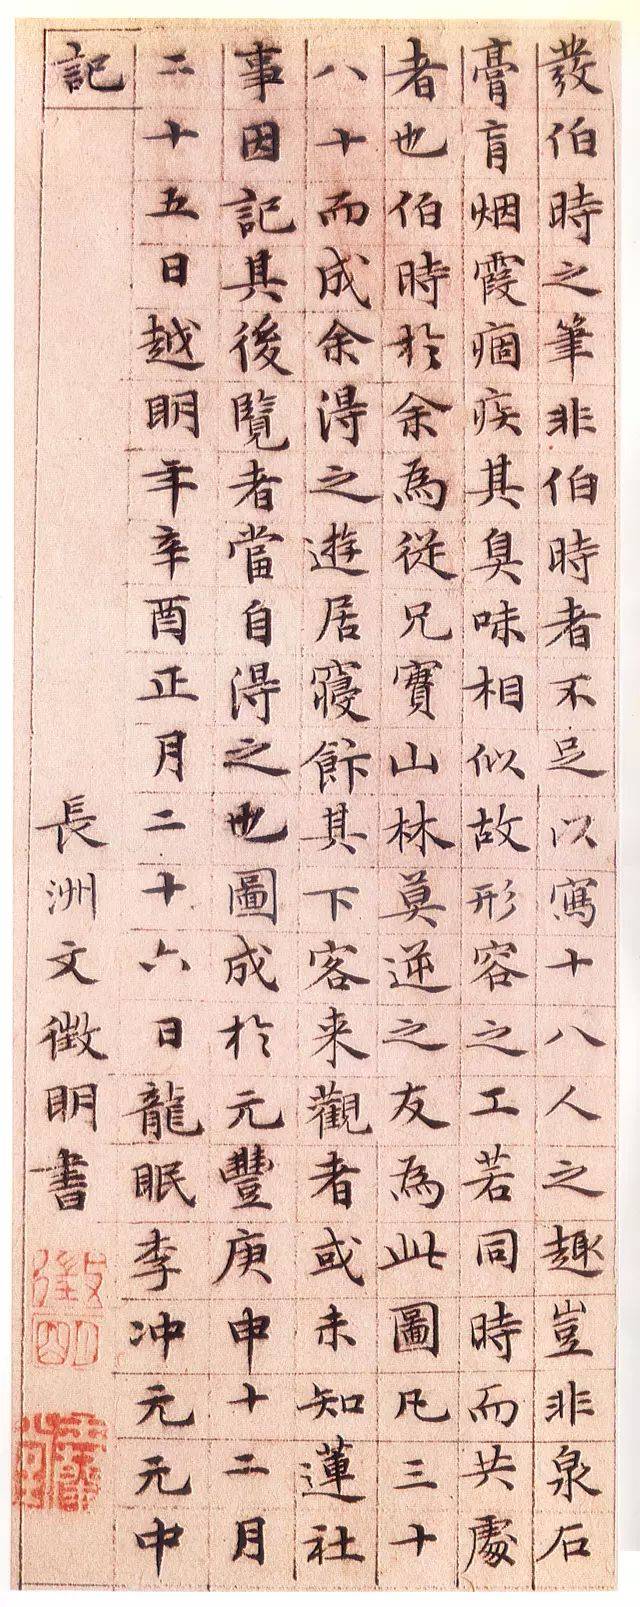 發伯時之筆非伯時者不足以寫十八人之趣豈非泉石
膏肓烟霞痼疾其臭味相似故形容之工若同時而共處
者也伯時於余為從兄寶山林莫逆之友為此圖凡三十
八十而成余得之遊居寢飾其下客来觀者或未知蓮社
事因記其後覽者當自得之也圖成於元豐庚申十二月
二十五日越明年辛酉正月二十六日龍眠李冲元元中
記
長洲文徵明書
徵明